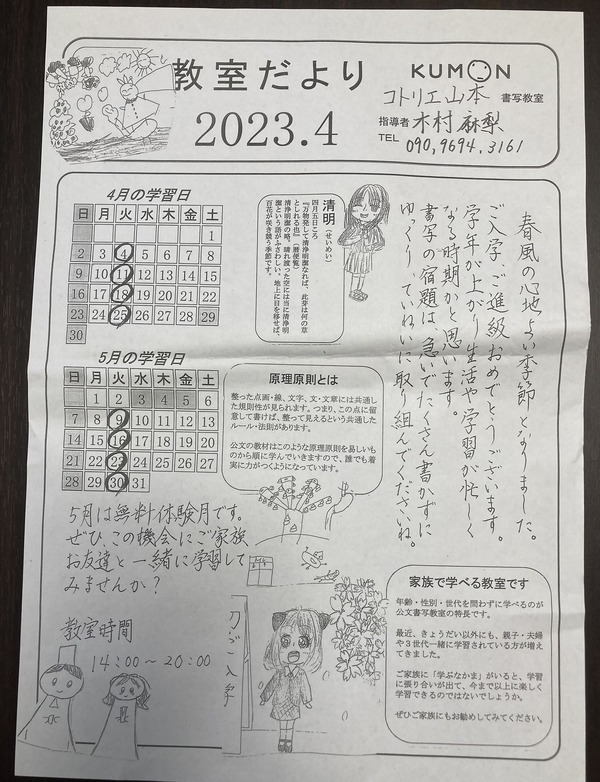 教室だより
2023.4
KUMON
コトリエ山本 書写教室
指導者 木村 麻梨
TEL 090,9694,3161
4月の学習日
日 月 火 水 木 金 土
1
2 3 4 5 6 7 8
9 10 11 12 13 14 15
16 17 18 19 20 21 22
23 24 25 26 27 28 29
30
清明(せいめい)
四月五日ころ
『万物発して清浄明潔なれば、此芽は何の草
としれる也』(暦便覧)
清浄明潔の略。晴れ渡った空には当に清浄明
潔という語がふさわしい。地上に目を移せば、
百花が咲き競う季節です。
春風の心地よい季節となりました。
ご入学、ご進級おめでとうございます。
学年が上がり生活や学習が忙しく
なる時期かと思います。
書写の宿題は、急いでたくさん書かずに
ゆっくり、ていねいに取り組んでくださいね。
5月の学習日
日 月 火 水 木 金 土
1 2 3 4 5 6
7 8 9 10 11 12 13
14 15 16 17 18 19 20
21 22 23 24 25 26 27
28 29 30 31
原理原則とは
整った点画・線、文字、文・文章には共通し
た規則性が見られます。つまり、この点に留
意して書けば、整って見えるという共通した
ルール・法則があります。
公文の教材はこのような原理原則を易しいも
のから順に学んでいきますので、誰でも着
実に力がつくようになっています。
5月は無料体験月です。
ぜひ、この機会にご家族
お友達と一緒に学習して
みませんか?
教室時間
14:00~20:00
家族で学べる教室です
年齢・性別・世代を問わずに学べるのが
公文書写教室の特長です。
最近、きょうだい以外にも、親子・夫婦
や3世代一緒に学習されている方が増え
てきました。
ご家族に「学ぶなかま」がいると、学習
に張り合いが出て、今まで以上に楽しく
学習できるのではないでしょうか。
ぜひご家族にもお勧めしてみてください。